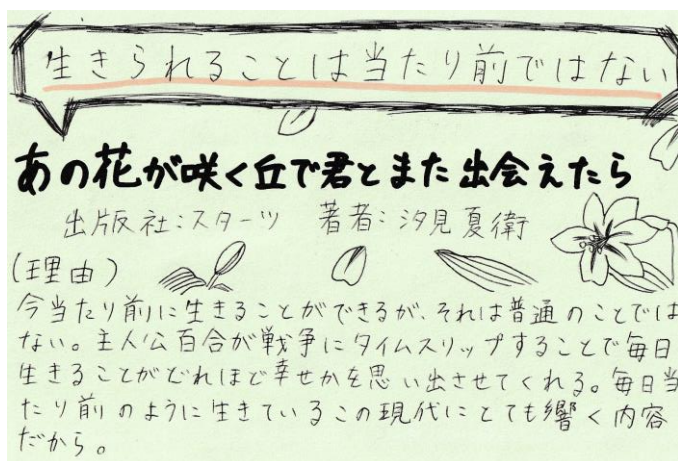 生きられることは当たり前ではない
あの花が咲く丘で君とまた出会えたら
出版社:スターツ 著者:汐見夏衛
(理由)
今当たり前に生きることができるが、それは普通のことでは
ない。主人公百合が戦争にタイムスリップすることで毎日
生きることがどれほど幸せかを思い出させてくれる。毎日当
たり前のように生きているこの現代にとても響く内容
だから。